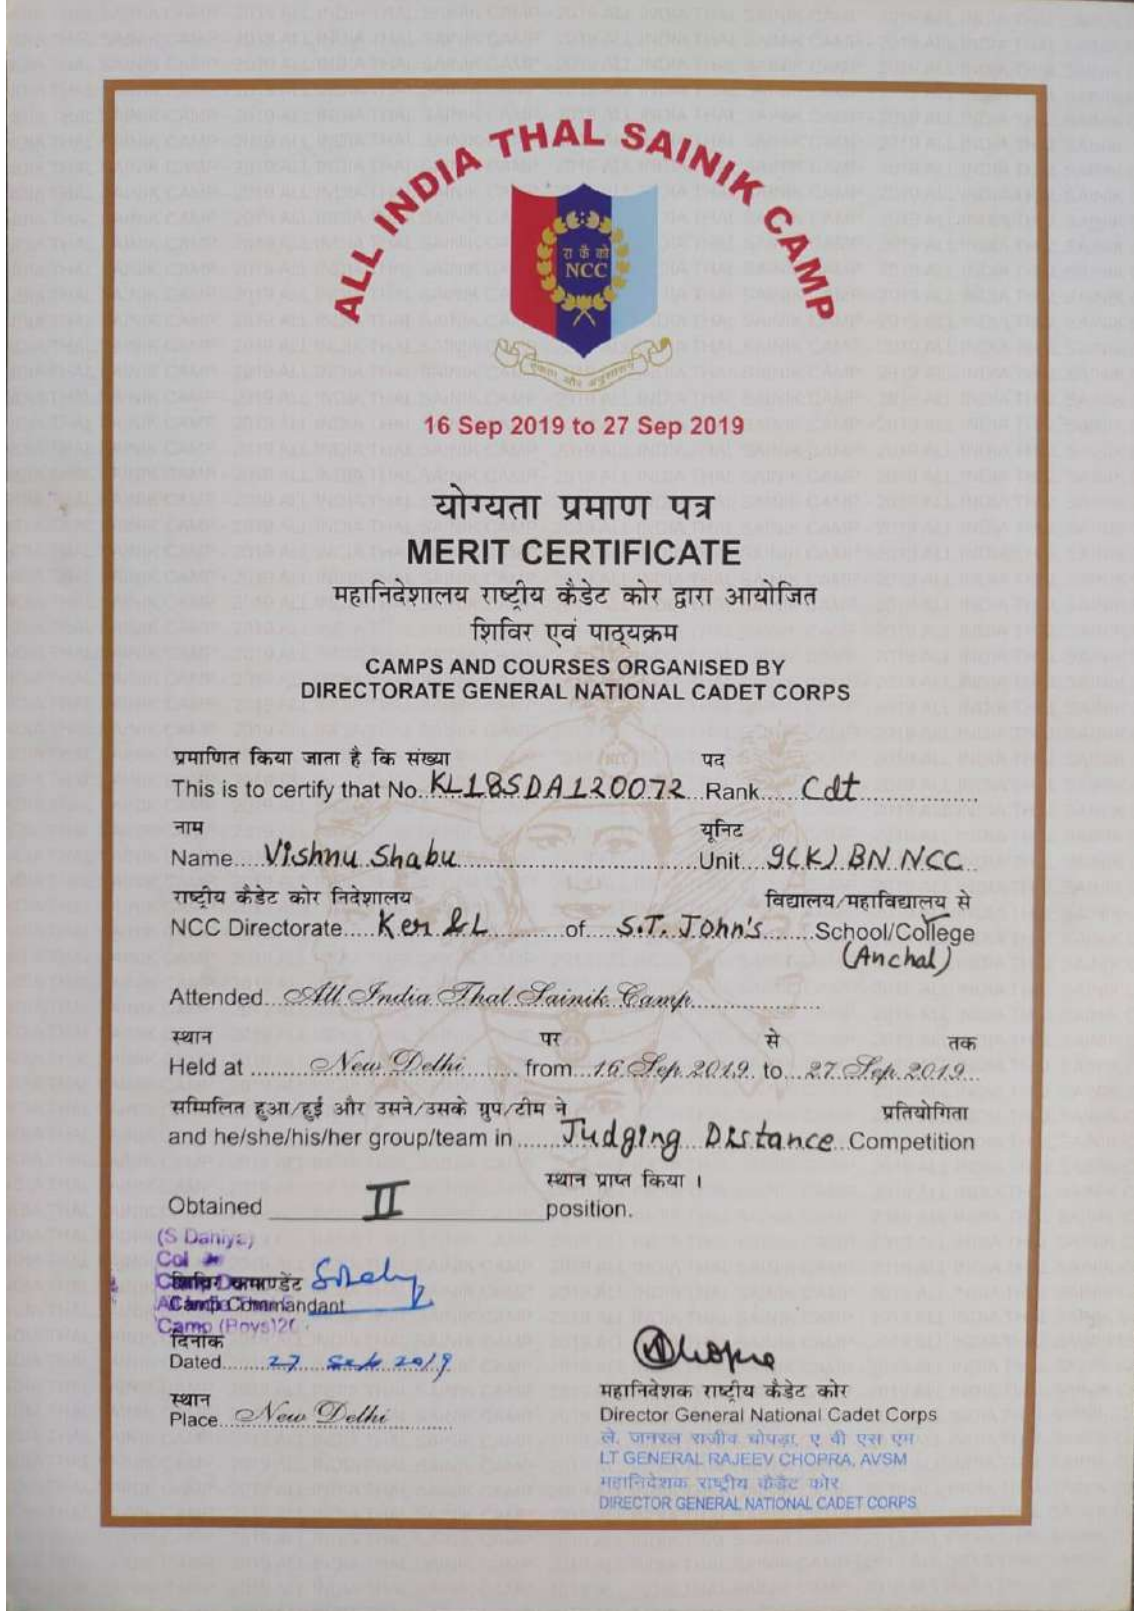 ALL INDIA THAL SAINIK CAMP
रा कै को
NCC
एकता और अनुशासन
16 Sep 2019 to 27 Sep 2019
योग्यता प्रमाण पत्र
MERIT CERTIFICATE
महानिदेशालय राष्ट्रीय कैडेट कोर द्वारा आयोजित
शिविर एवं पाठ्यक्रम
CAMPS AND COURSES ORGANISED BY
DIRECTORATE GENERAL NATIONAL CADET CORPS
प्रमाणित किया जाता है कि संख्या पद
This is to certify that No. KL18SDA120072 Rank Cdt
नाम यूनिट
Name Vishnu Shabu Unit 9(K) BN NCC
राष्ट्रीय कैडेट कोर निदेशालय विद्यालय/महाविद्यालय से
NCC Directorate Ker & L of S.T. John's School/College
(Anchal)
Attended All India Thal Sainik Camp
स्थान पर से तक
Held at New Delhi from 16 Sep 2019 to 27 Sep 2019
सम्मिलित हुआ/हुई और उसने/उसके ग्रुप/टीम ने प्रतियोगिता
and he/she/his/her group/team in Judging Distance Competition
स्थान प्राप्त किया ।
Obtained II position.
(S Dahiya)
Col
शिविर कमाण्डेंट
Camp Commandant
Camp (Boys)
दिनांक
Dated 27 Sep 2019
स्थान
Place New Delhi
महानिदेशक राष्ट्रीय कैडेट कोर
Director General National Cadet Corps
ले. जनरल राजीव चोपड़ा, ए वी एस एम
LT GENERAL RAJEEV CHOPRA, AVSM
महानिदेशक राष्ट्रीय कैडेट कोर
DIRECTOR GENERAL NATIONAL CADET CORPS